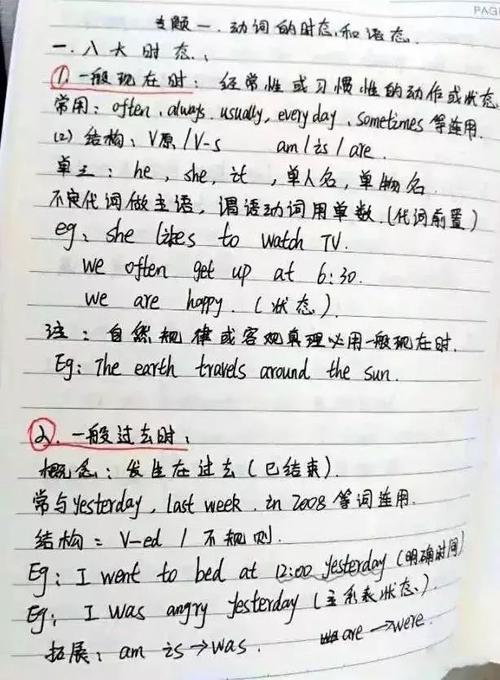 PAG
专题一.动词的时态和语态.
一.八大时态:
1.一般现在时:经常性或习惯性的动作或状态
常用:often,always,usually,everyday,sometimes等连用.
(2)结构:V原/V-s am/is/are.
单三:he,she,it,单人名,单物名.
不定代词做主语,谓语动词用单数.(代词前置)
eg:she likes to watch TV.
we often get up at 6:30.
we are happy.(状态).
注:自然规律或客观真理必用一般现在时.
Eg:The earth travels around the sun.
2.一般过去时:
概念:发生在过去(已结束).
常与yesterday,last week,in 2008等词连用.
结构:V-ed/不规则.
Eg:I went to bed at 12:00 yesterday(明确时间)
Eg:I was angry yesterday(主系表状态.)
拓展:am is→was. are→were.